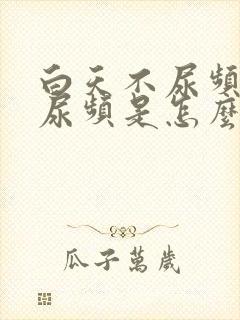 白天不尿頻
尿頻是怎麼
瓜子萬歲